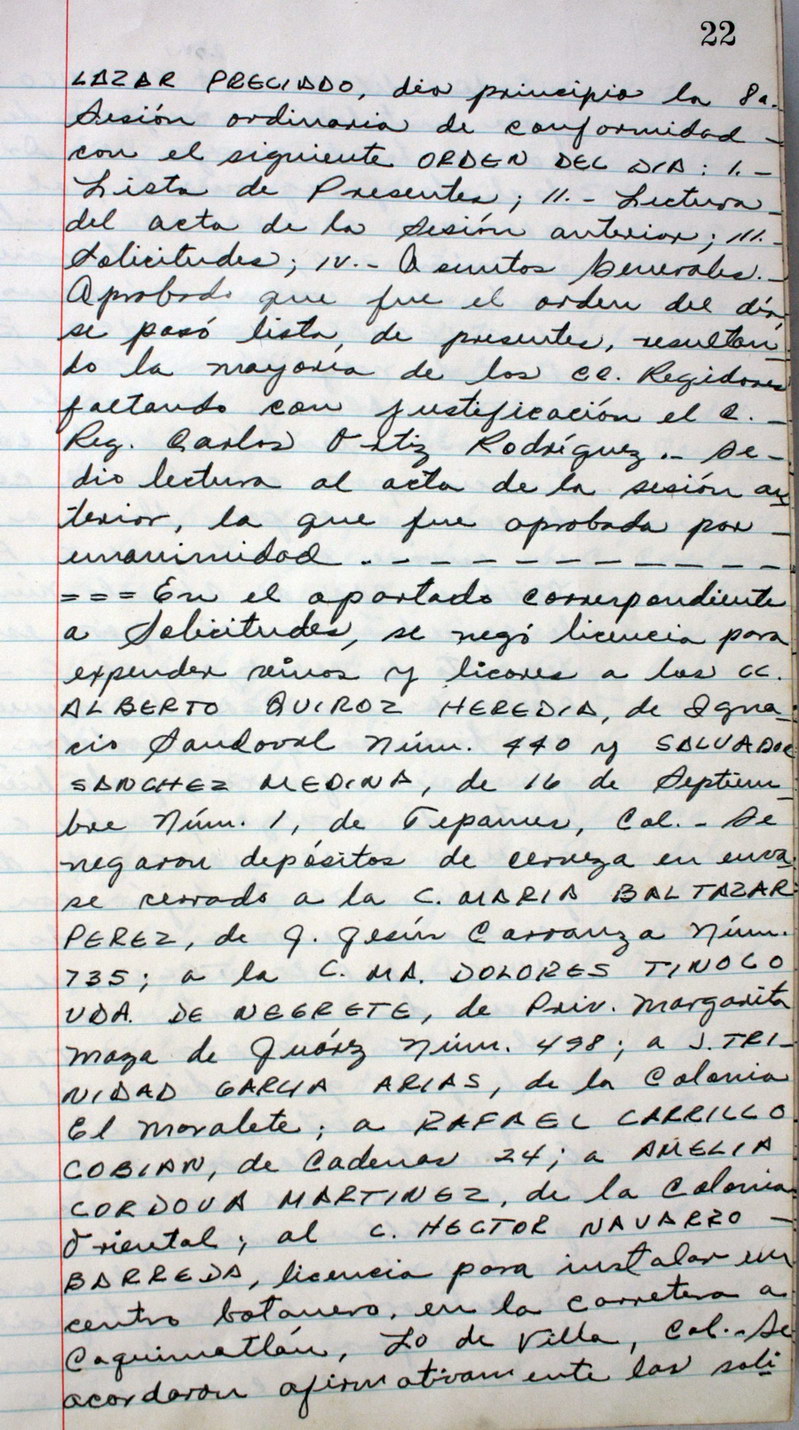 22
LAZAR PRECIADO, dio principio la 8a.
Sesión ordinaria de conformidad -
con el siguiente ORDEN DEL DIA: I.-
Lista de Presentes; II.- Lectura
del acta de la Sesión anterior; III.-
Solicitudes; IV.- Asuntos Generales.-
Aprobado que fue el orden del día
se pasó lista, de presentes, resultan-
do la mayoría de los CC. Regidores
faltando con justificación el C. -
Reg. Carlos Ortiz Rodríguez.- Se -
dio lectura al acta de la sesión an
terior, la que fue aprobada por -
unanimidad. - - - - - - - - - - -
=== En el apartado correspondiente
a Solicitudes, se negó licencia para
expender vinos y licores a los CC.
ALBERTO QUIROZ HEREDIA, de Igna-
cio Sandoval Núm. 440 y SALVADOR
SANCHEZ MEDINA, de 16 de Septiem-
bre Núm. 1, de Tepames, Col.- Se
negaron depósitos de cerveza en enva-
se cerrado a la C. MARIA BALTAZAR
PEREZ, de J. Jesús Carranza Núm.
735; a la C. MA. DOLORES TINOCO
VDA. DE NEGRETE, de Priv. Margarita
Maza de Juárez Núm. 498; a J. TRI-
NIDAD GARCIA ARIAS, de la Colonia
El Moralete; a RAFAEL CARRILLO
COBIAN, de Cadenas 24; a AMELIA
CORDOVA MARTINEZ, de la Colonia
Oriental; al C. HECTOR NAVARRO -
BARREDA, licencia para instalar un
centro botanero, en la carretera a
Coquimatlán, Lo de Villa, Col.- Se
acordaron afirmativamente las soli